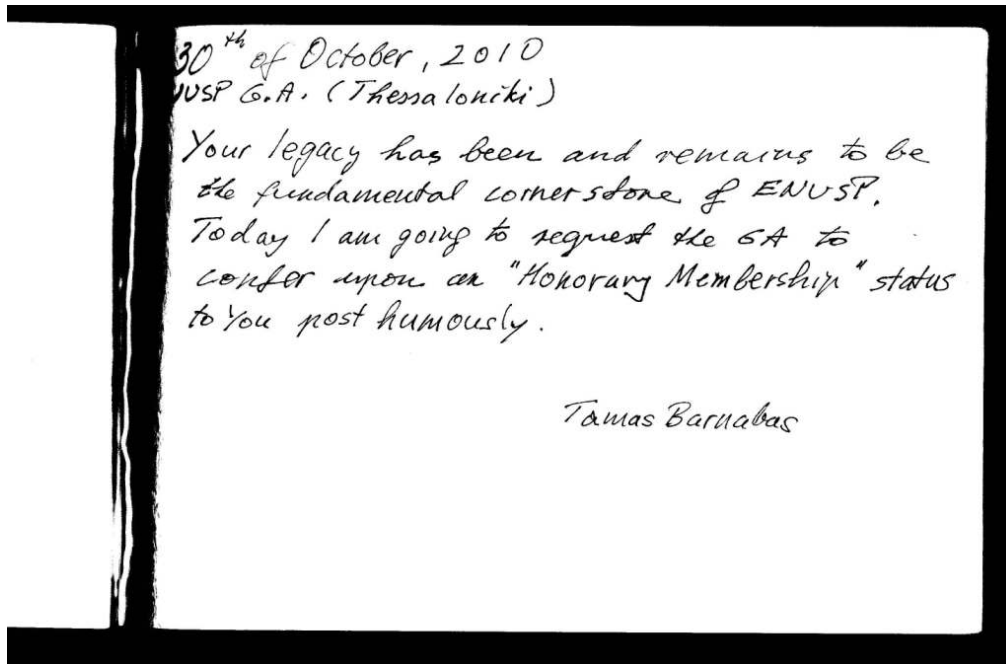 30th of October, 2010
NUSP G.A. (Thessaloniki)
Your legacy has been and remains to be
the fundamental cornerstone of ENUSP.
Today I am going to request the GA to
confer upon an "Honorary Membership" status
to You post humously.
Tamas Barnabas